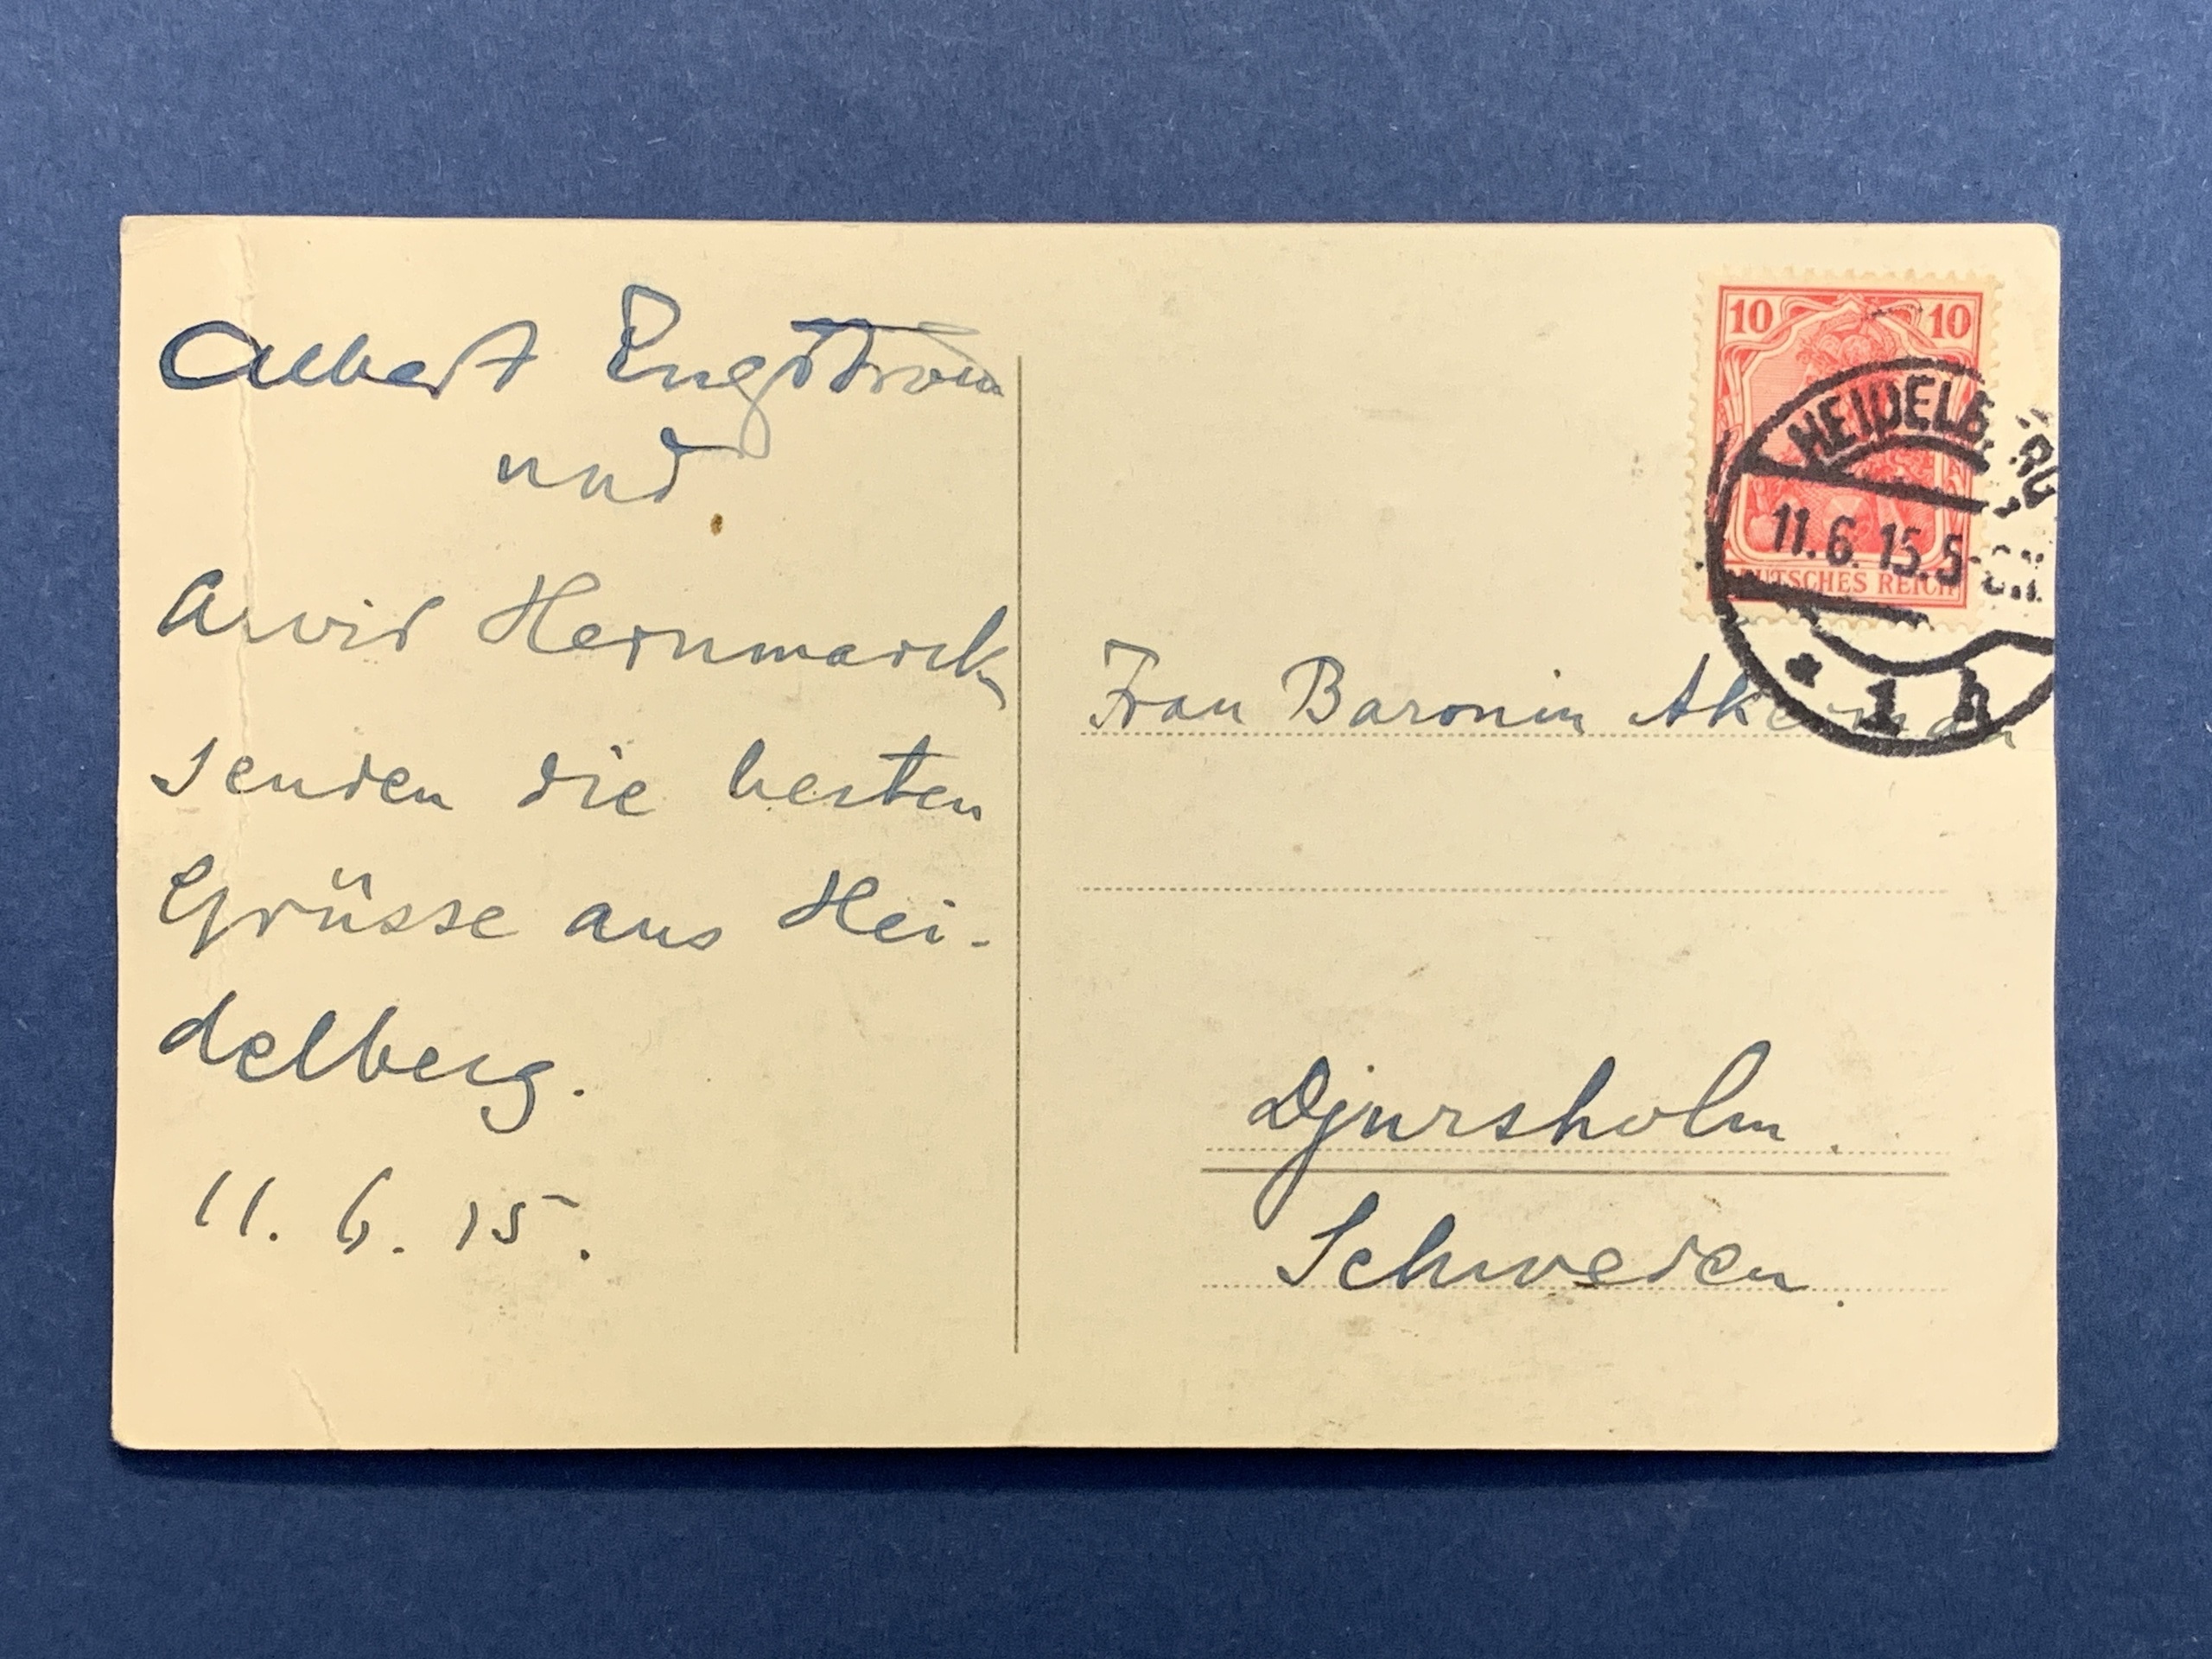 Albert Engström
und
Arvid Hernmarck
senden die besten
Grüsse aus Hei-
delberg.
11. 6. 15.
10 10
DEUTSCHES REICH
HEIDELBERG
11.6.15.5-
* 1 h
Frau Baronin Akerman
Djursholm.
Schweden.